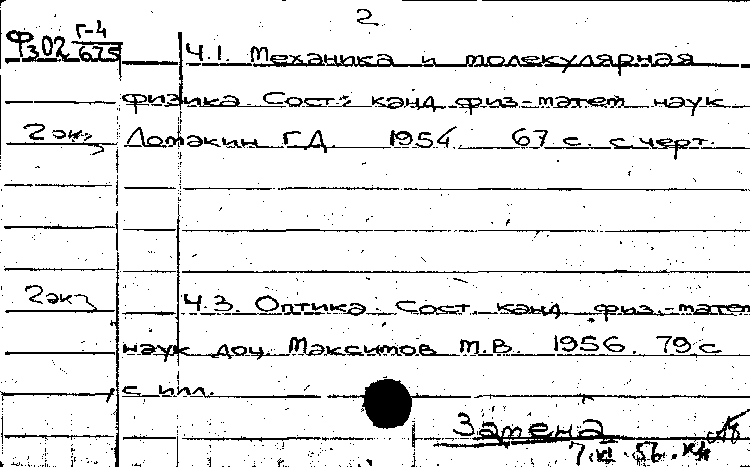 2
Фз02 Г-4/675
Ч.1. Механика и молекулярная
физика Сост.: канд физ-матем наук
2 экз Ломакин Г.Д. 1954 67 с. с черт.
2 экз Ч.3. Оптика. Сост. канд. физ.-матем
наук доц. Максимов М.В. 1956. 79 с
с илл.
Замена